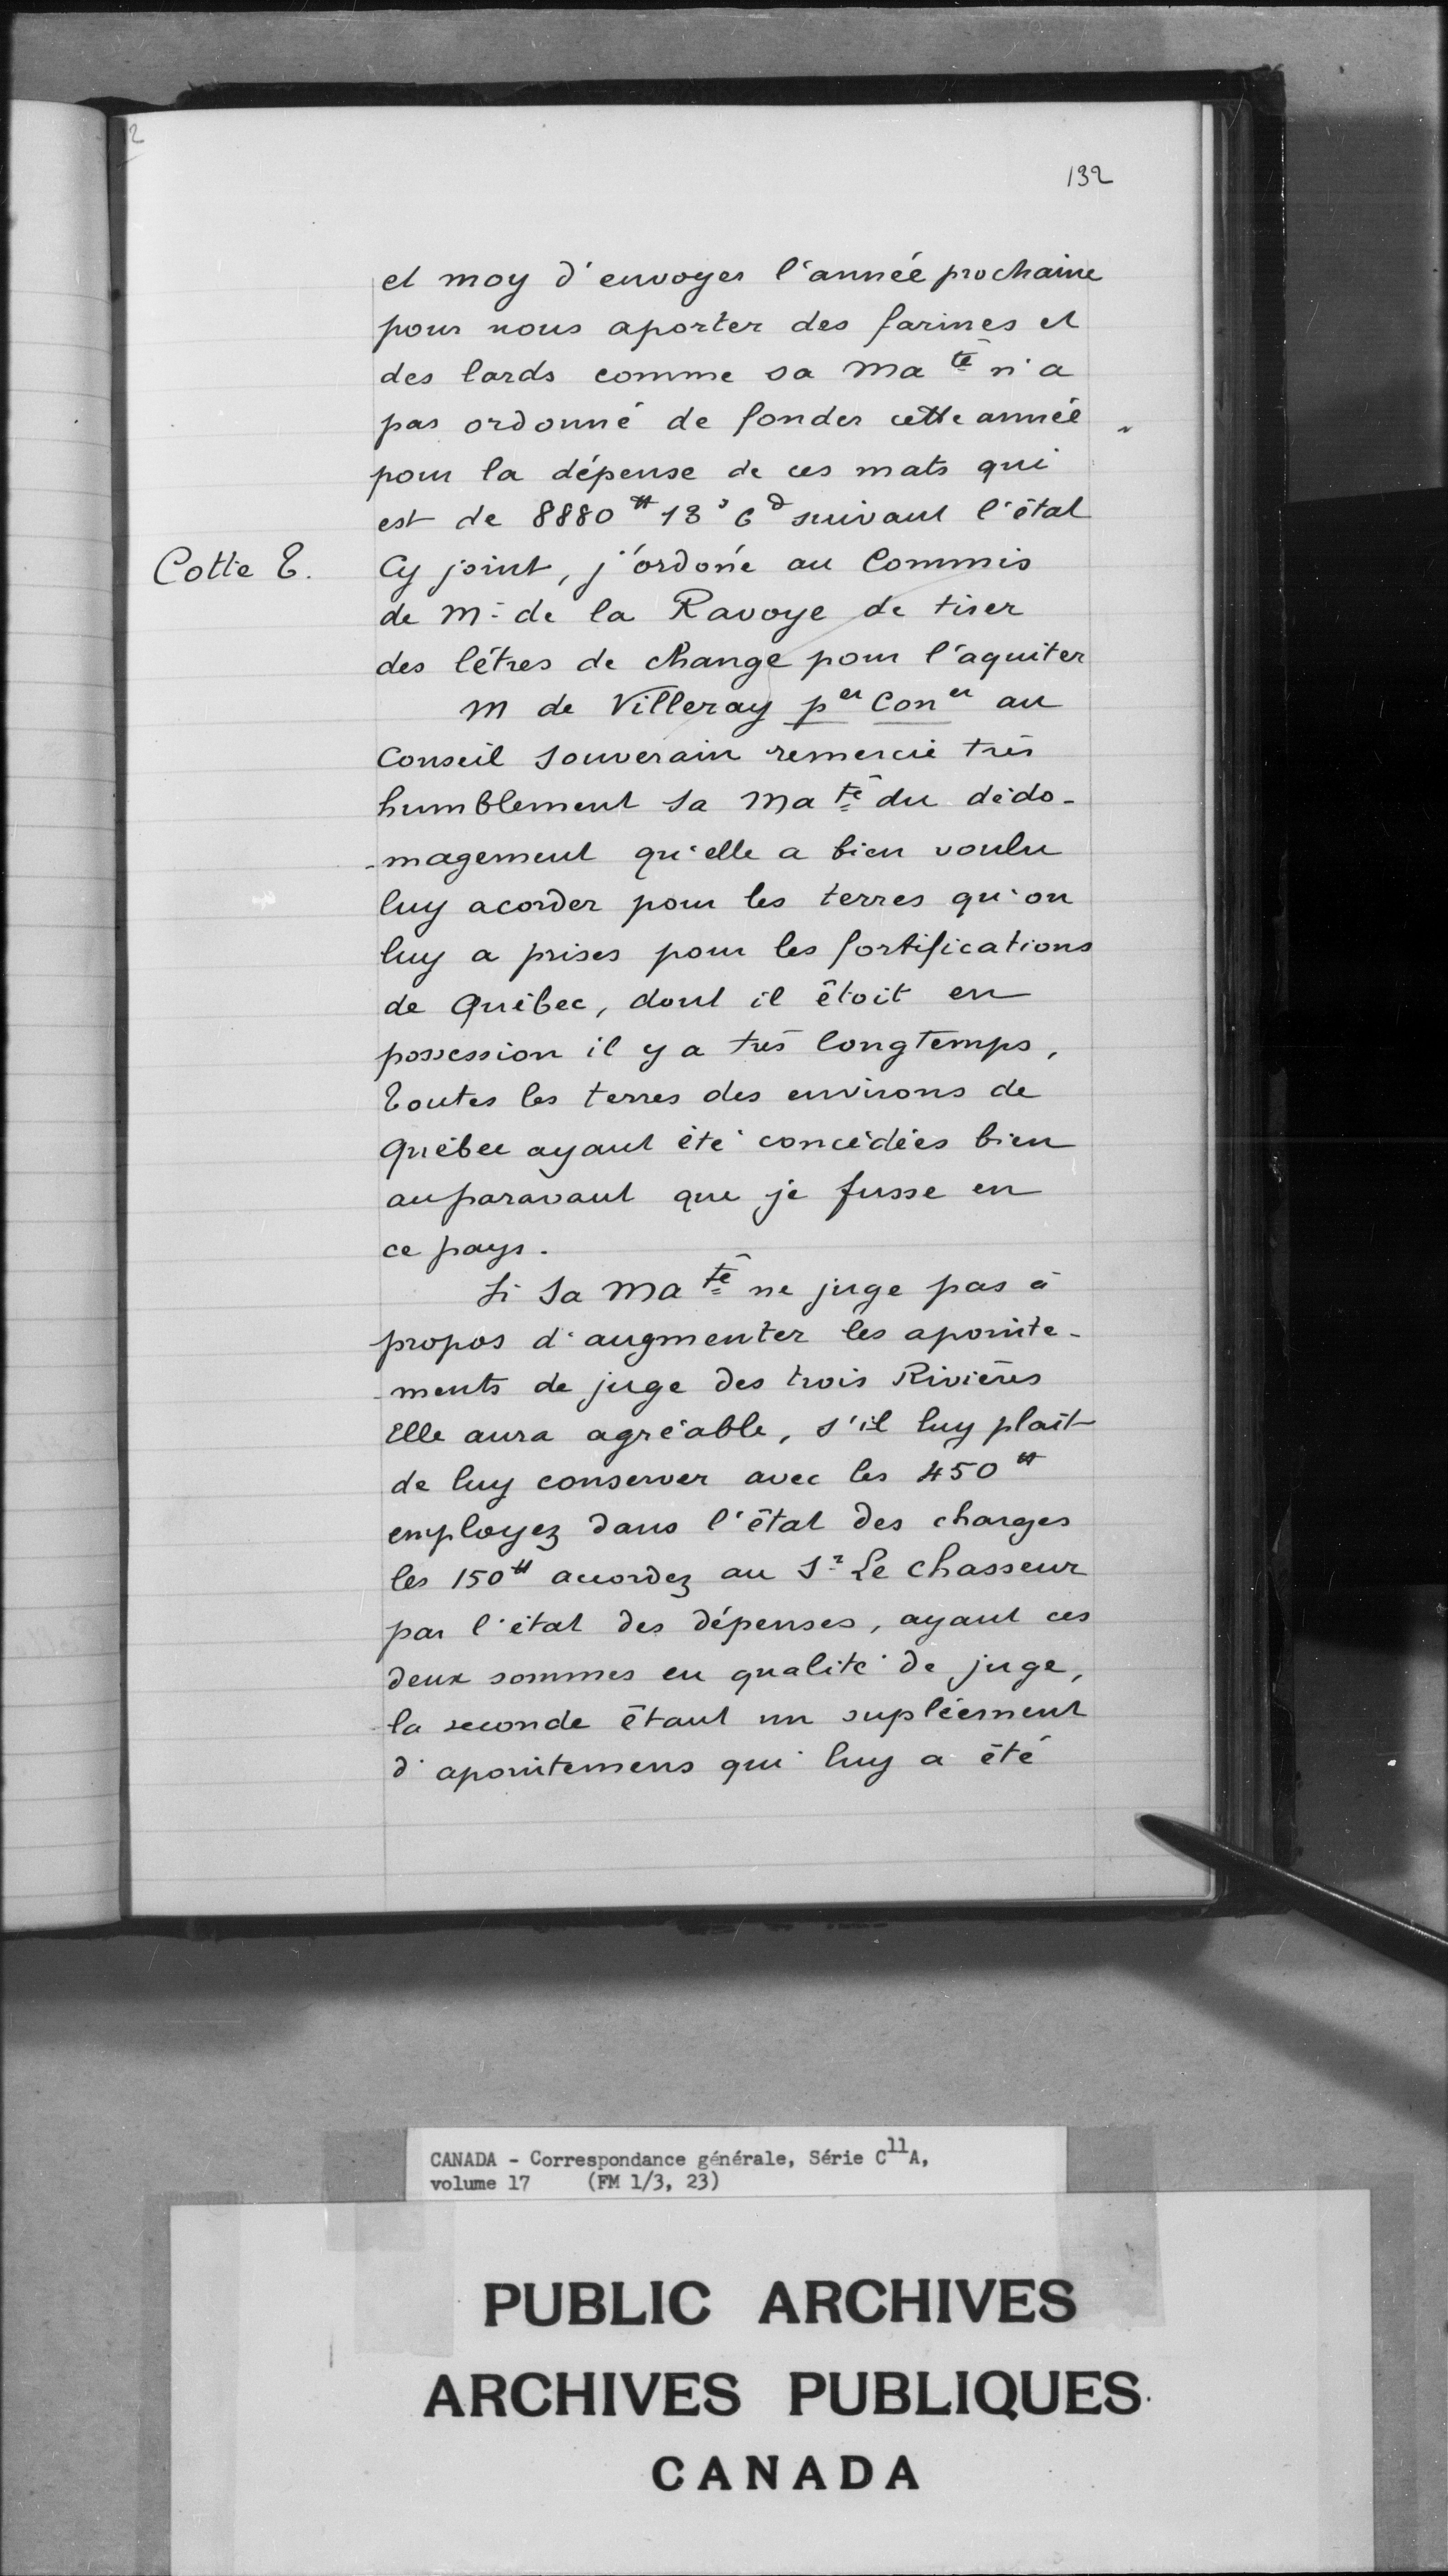 2
132
et moy d'envoyer l'année prochaine
pour nous aporter des farines et
des lards comme sa Ma té n'a
pas ordonné de fonder cette année
pour la dépense de ces mats qui
est de 8880 ₶ 18 s 6 d suivant l'état
Cotte E. Cy joint, j'ordoné au Commis
de Mr de la Ravoye de tirer
des létres de change pour l'aquiter
M de Villeray per Coner au
Conseil Souverain remercie très
humblement Sa Ma té du dédo-
-magement qu'elle a bien voulu
luy acorder pour les terres qu'on
luy a prises pour les fortifications
de Québec, dont il êtoit en
possession il y a très longtemps,
Toutes les terres des environs de
Québec ayant été concédées bien
auparavant que je fusse en
ce pays.
Si Sa Ma té ne juge pas à
propos d'augmenter les apointe-
-ments de juge des trois Rivières
Elle aura agréable, s'il luy plaît
de luy conserver avec les 450 ₶
employez dans l'êtat des charges
les 150 ₶ acordez au Sr Le Chasseur
par l'état des dépenses, ayant ces
deux sommes en qualité de juge,
la seconde êtant un supléement
d'apointemens qui luy a été
CANADA - Correspondance générale, Série C11A,
volume 17 (FM 1/3, 23)
PUBLIC ARCHIVES
ARCHIVES PUBLIQUES
CANADA